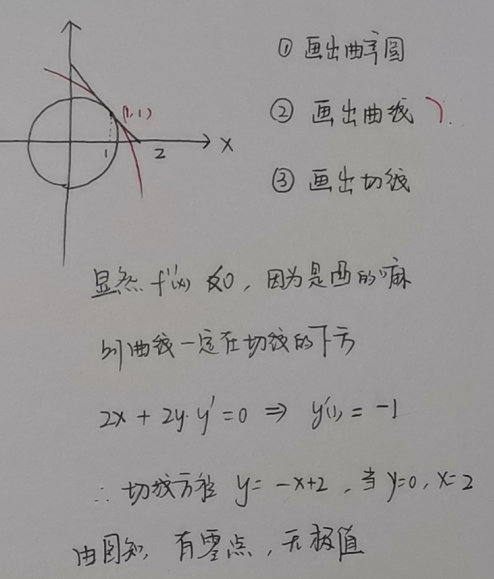 ① 画出曲率圆
(1,1)
② 画出曲线
1
2
X
③ 画出切线
显然 f''(x) <0, 因为是凸的嘛
则曲线一定在切线的下方
2x + 2y·y' = 0 ⇒ y'(1) = -1
∴ 切线方程 y = -x+2, 当 y=0, x=2
由图知, 有零点, 无极值